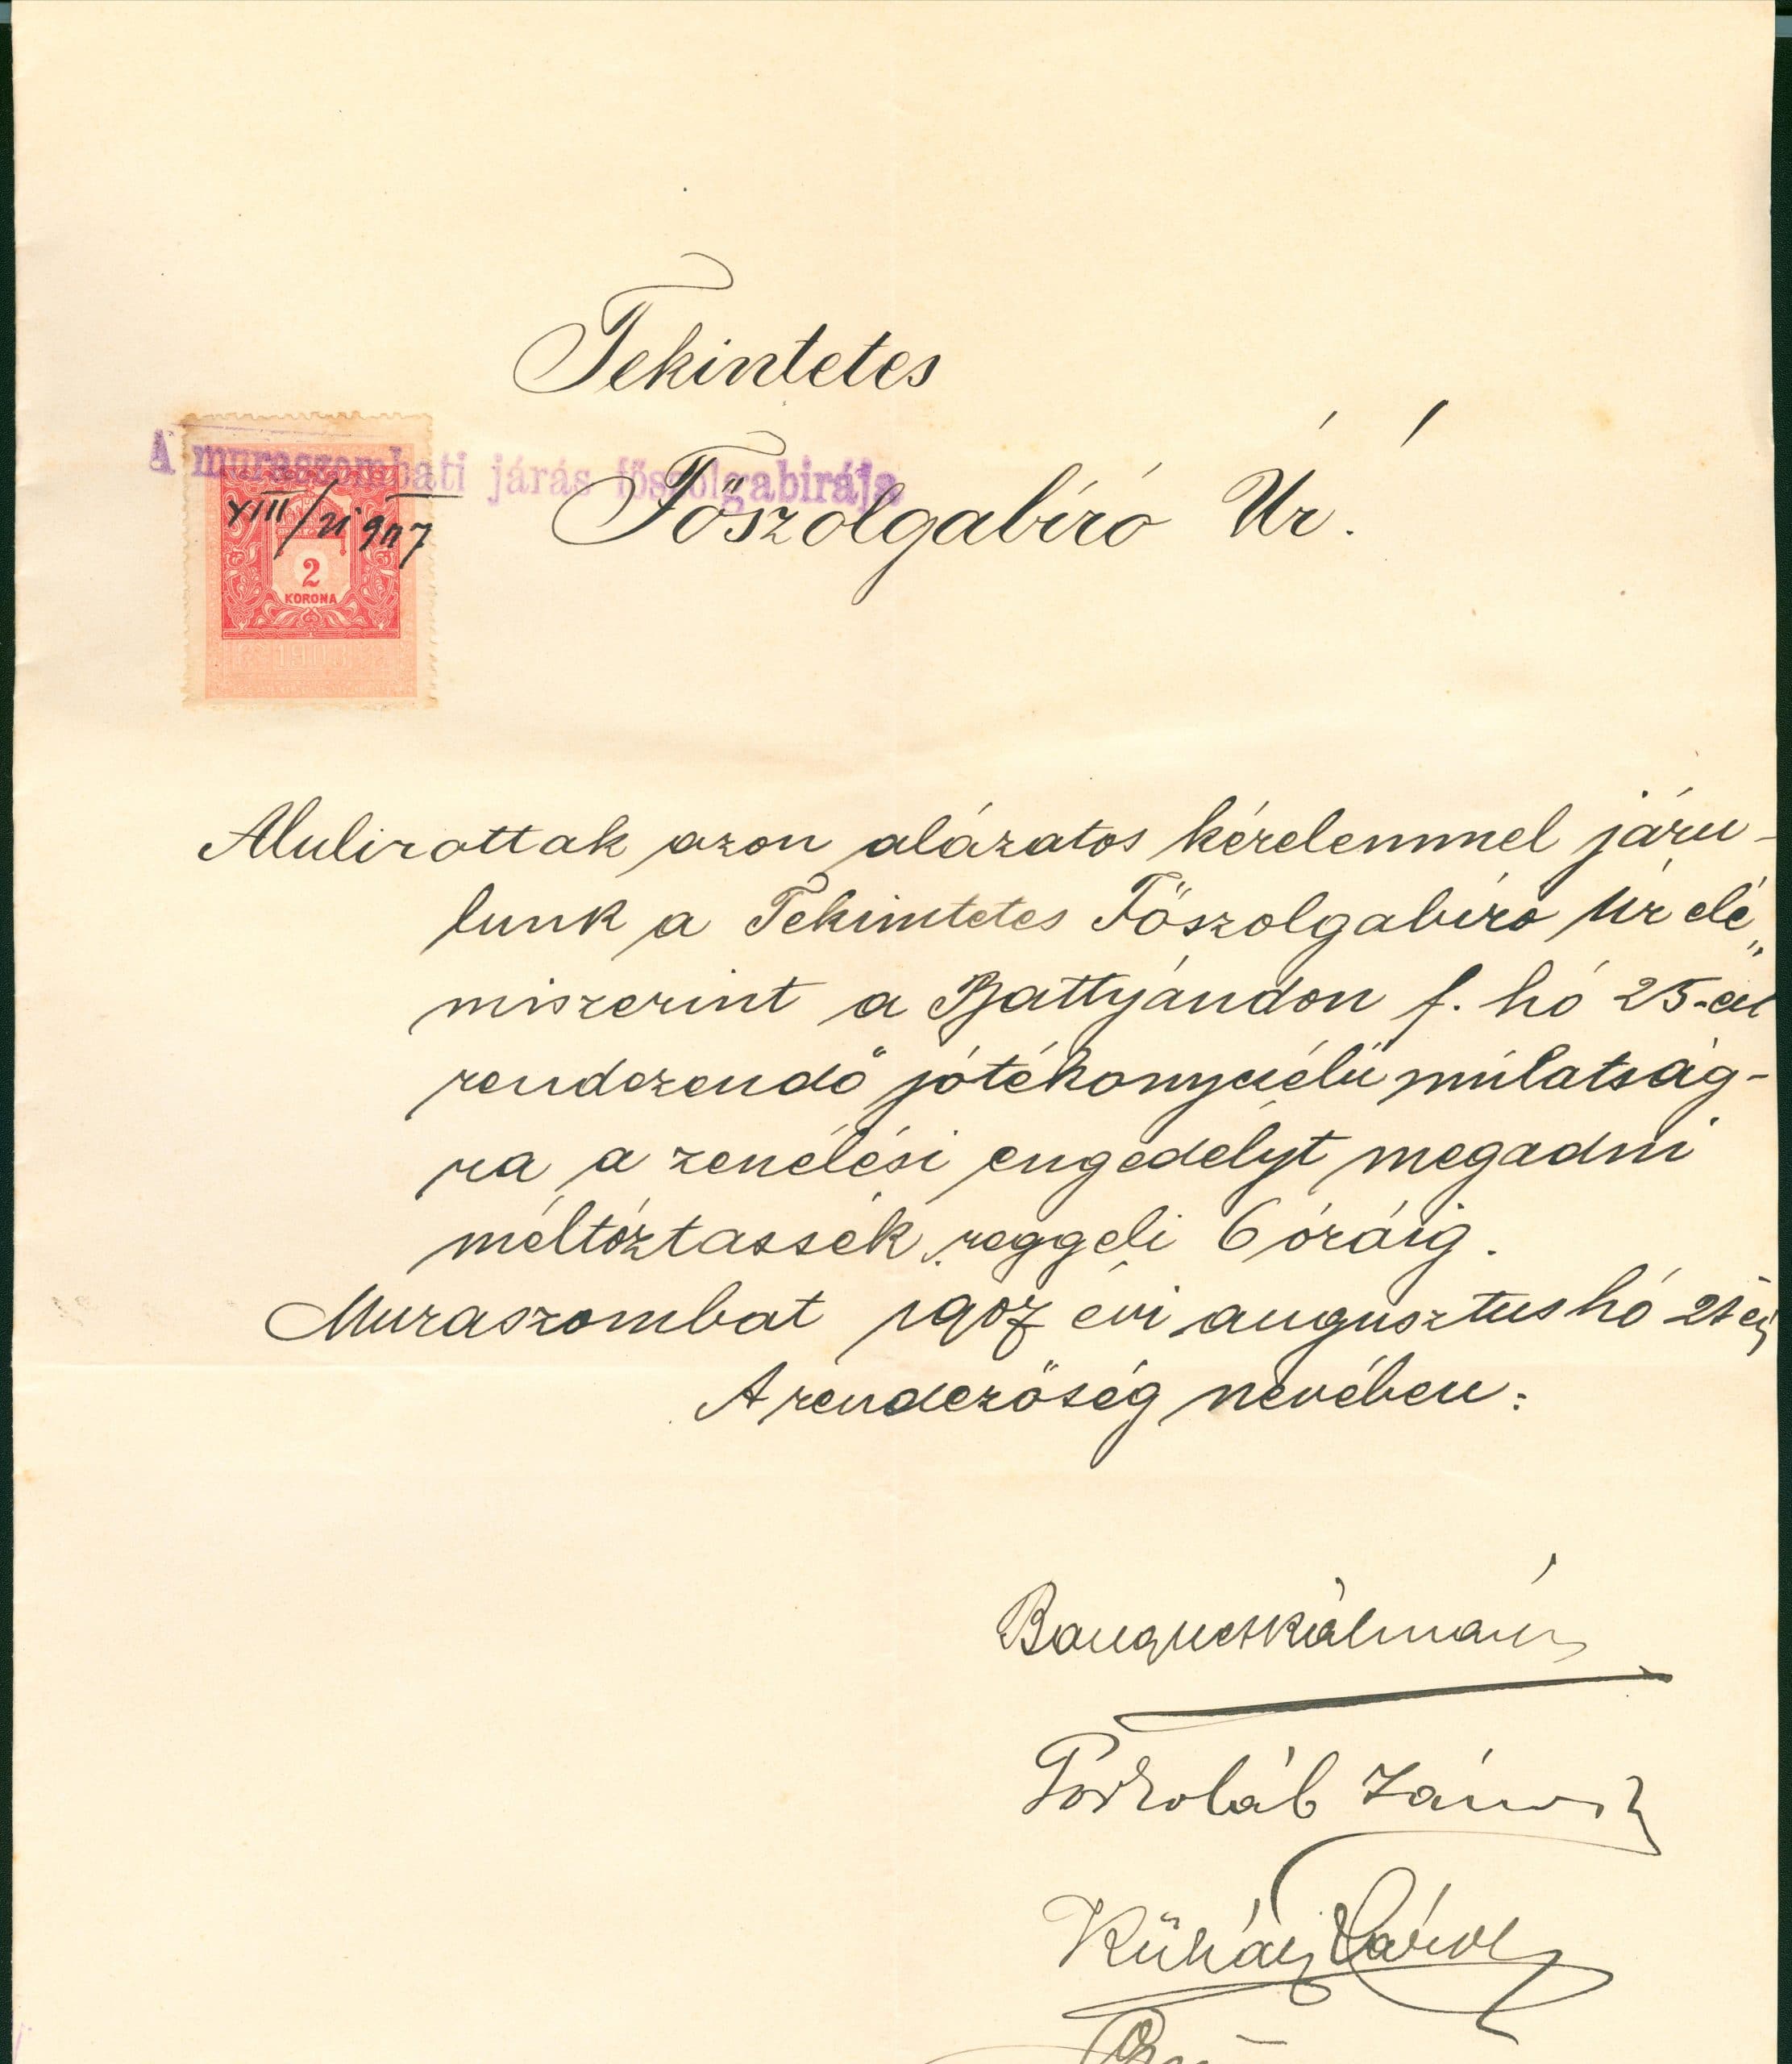 Tekintetes
A muraszombati járás főszolgabirája
Főszolgabíró Úr!
VIII/21 907
2
KORONA
1903
Alulirottak azon alázatos kérelemmel járu-
lunk a Tekintetes Főszolgabíró Úr elé
miszerint a Battyándon f. hó 25-én
rendezendő jótékonycélú múlatság-
ra a zenélési engedélyt megadni
méltóztassék reggeli 6 óráig.
Muraszombat 1907 évi augusztus hó 21 én
A rendezőség nevében:
Kálmán
János
Kühár Károly